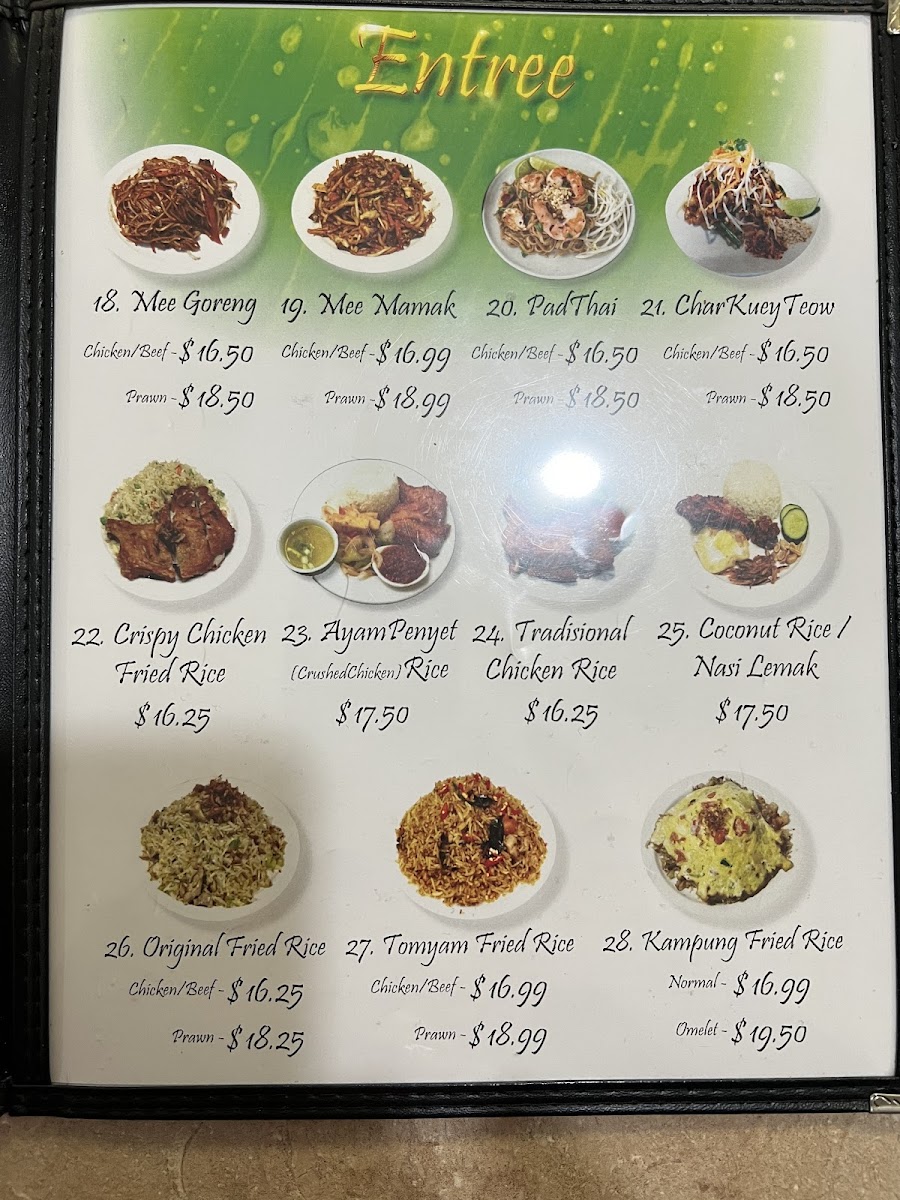 Entree
18. Mee Goreng
Chicken/Beef - $16.50
Prawn - $18.50
19. Mee Mamak
Chicken/Beef - $16.99
Prawn - $18.99
20. PadThai
Chicken/Beef - $16.50
Prawn - $18.50
21. CharKueyTeow
Chicken/Beef - $16.50
Prawn - $18.50
22. Crispy Chicken
Fried Rice
$16.25
23. AyamPenyet
(CrushedChicken) Rice
$17.50
24. Tradisional
Chicken Rice
$16.25
25. Coconut Rice /
Nasi Lemak
$17.50
26. Original Fried Rice
Chicken/Beef - $16.25
Prawn - $18.25
27. Tomyam Fried Rice
Chicken/Beef - $16.99
Prawn - $18.99
28. Kampung Fried Rice
Normal - $16.99
Omelet - $19.50